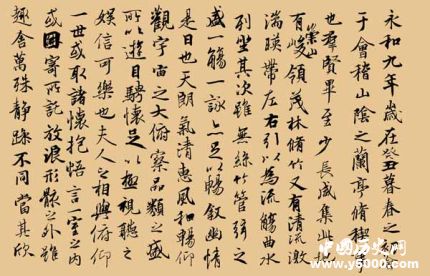 永和九年歲在癸丑暮春之初
于會稽山陰之蘭亭脩稧
也羣賢畢至少長咸集此地
有崇山峻領茂林脩竹又有清流激
湍暎帶左右引以為流觴曲水
列坐其次雖無絲竹管弦之
盛一觴一詠亦足以暢敘幽情
是日也天朗氣清惠風和暢仰
觀宇宙之大俯察品類之盛
所以遊目騁懷足以極視聽之
娛信可樂也夫人之相與俯仰
一世或取諸懷抱悟言一室之內
或因寄所託放浪形骸之外雖
趣舍萬殊靜躁不同當其欣
中国历史网
www.y6000.com